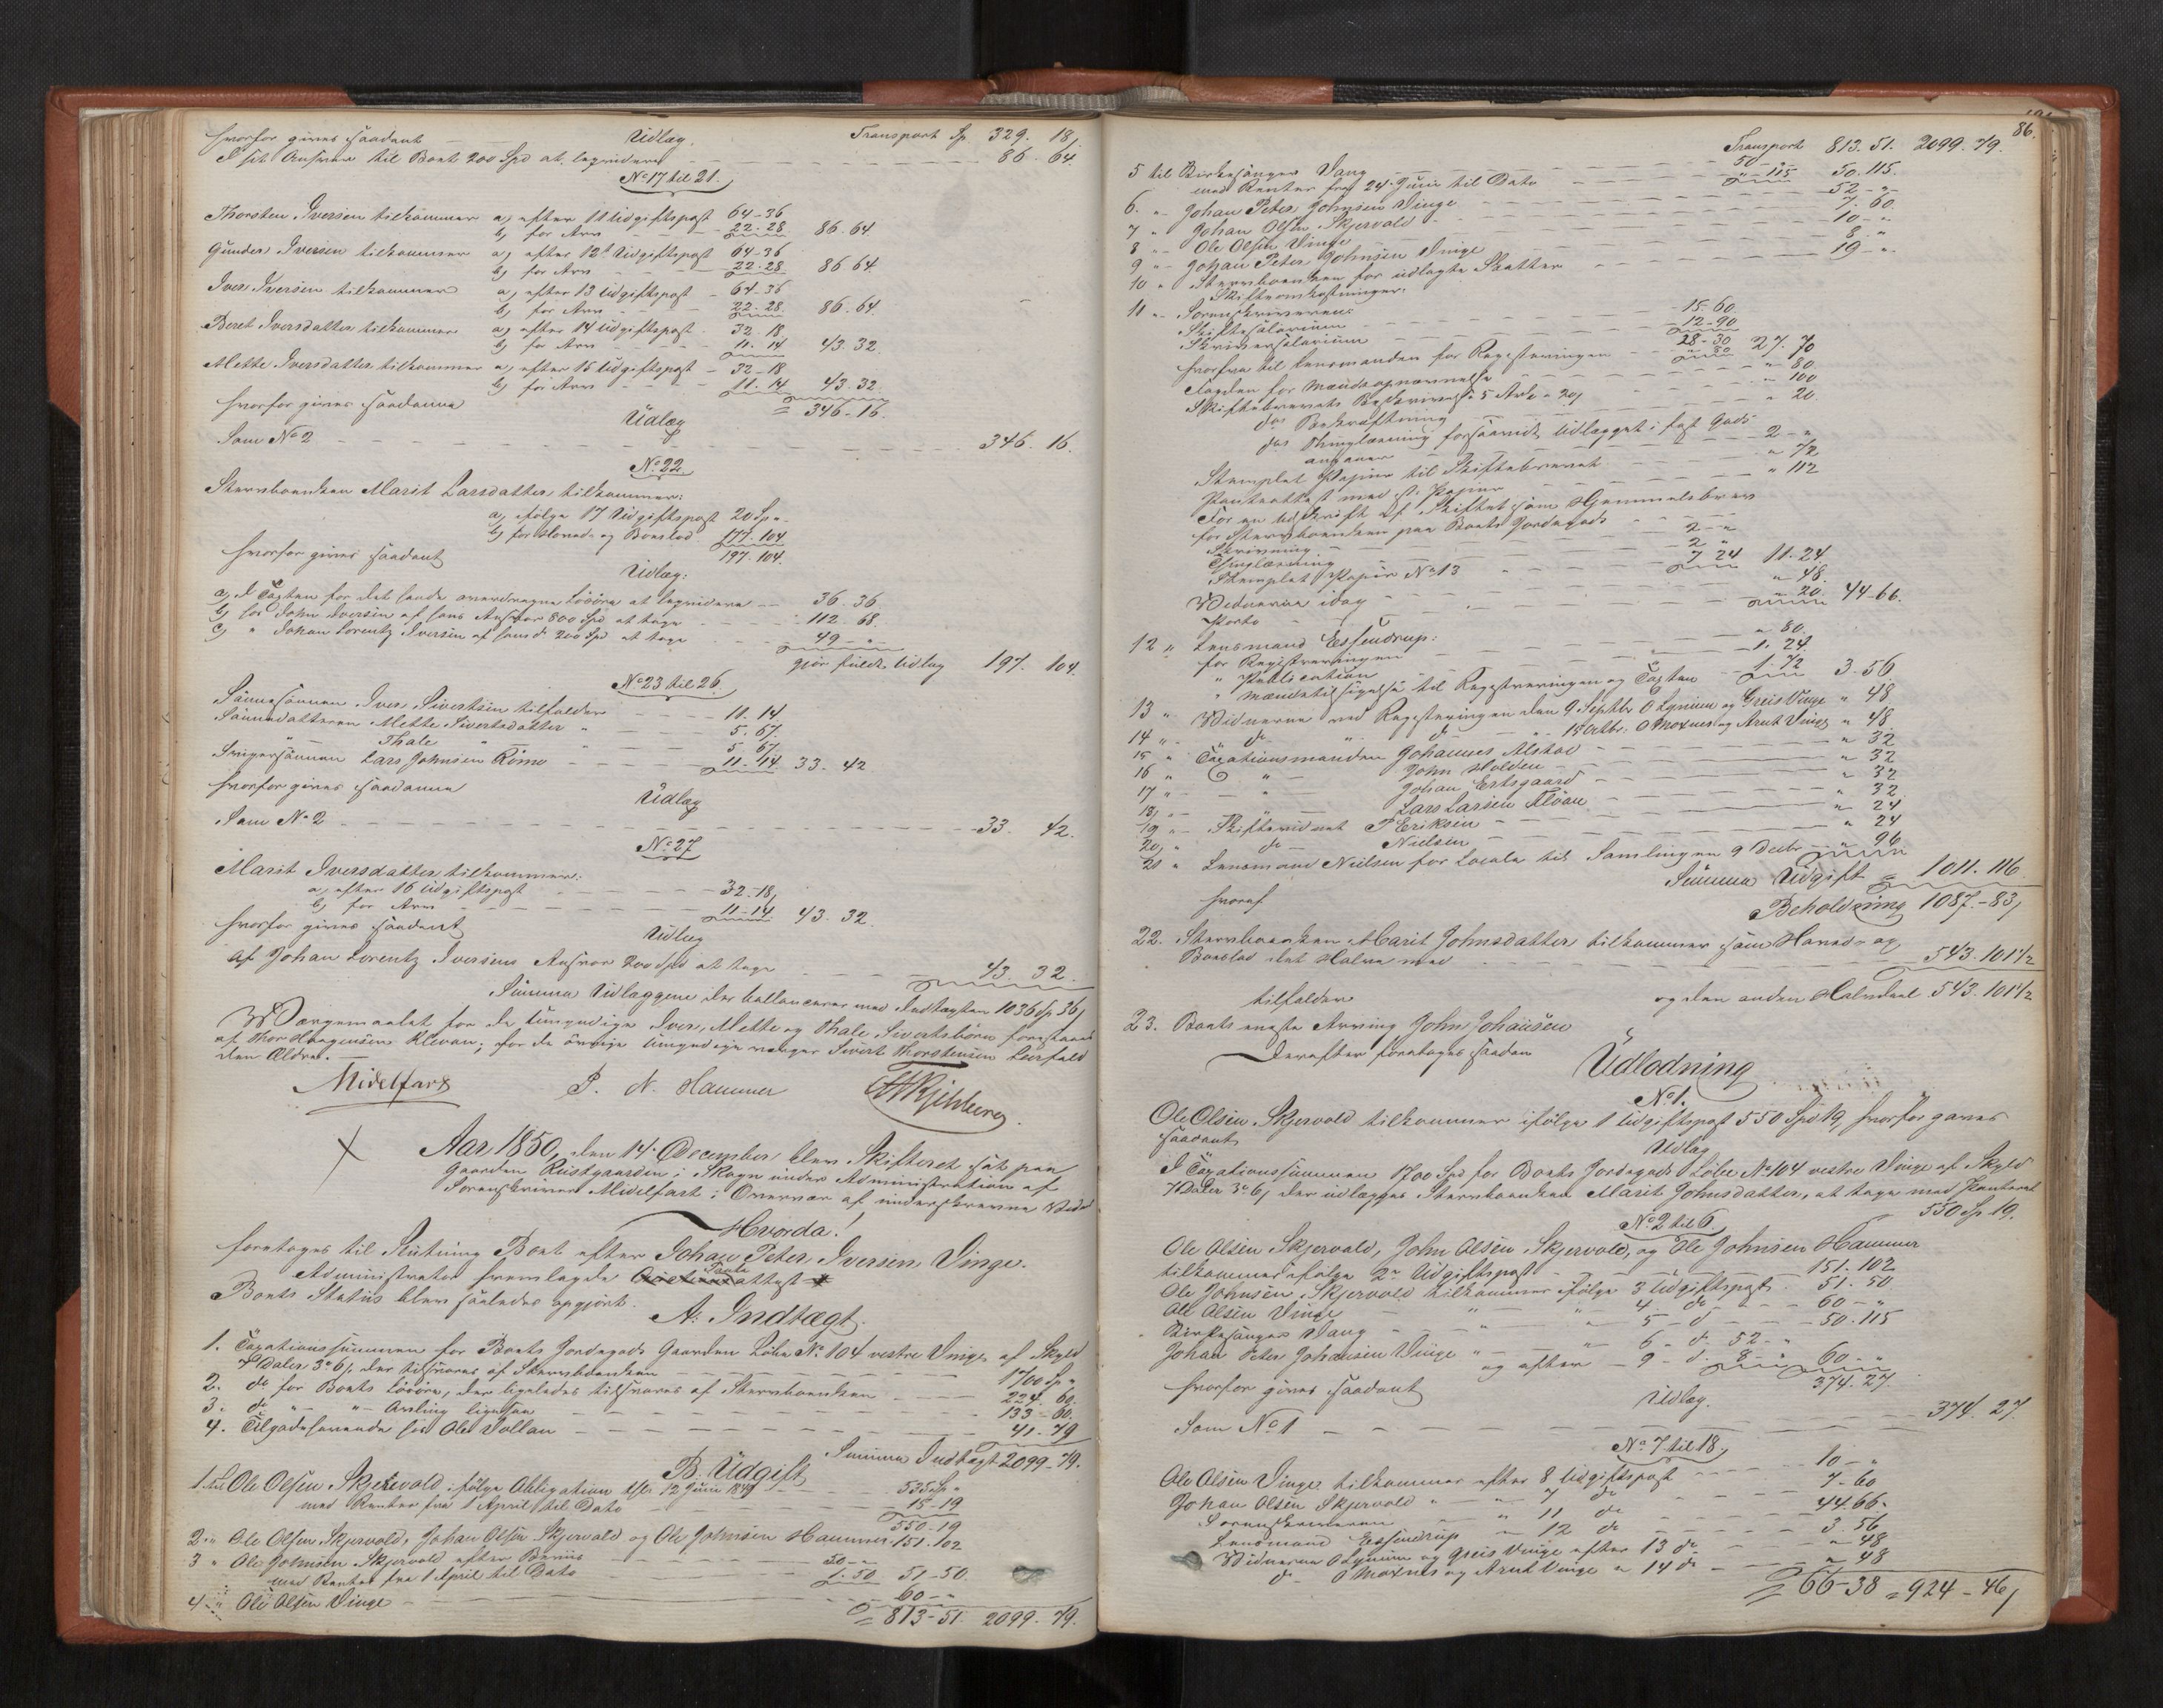 hvorfor gives saadant Udlæg. Transport Sp 329. 18,
I sit Ansvar til Boet 200 Spd at liqvidere 86. 64.
No 17 til 21.
Thorsten Iversen tilkommer a, efter 11 Udgiftspost 64-36
b, for Arv 22.28 86.64
Gunder Iversen tilkommer a, efter 12te Udgiftspost 64-36
b, for Arv 22-28 86 64
Iver Iversen tilkommer a, efter 13 Udgiftspost 64-36
b, for Arv 22-28. 86.64
Beret Iversdatter tilkommer a, efter 14 Udgiftspost 32.18
b, for Arv 11.14 43.32
Mette Iversdatter tilkommer a, efter 15 Udgiftspost 32-18
b, for Arv 11.14 43.32
hvorfor gives saadanne = 346-16.
Udlæg
Som No 2 346. 16.
No 22
Stervboenken Marit Larsdatter tilkommer:
a, ifølge 17 Udgiftspost 20 Sp "-
b, for Hoved- og Boeslod 177-104
hvorfor gives saadant 197-104.
Udlæg:
a, I Taxten for det hende overdragne Løsøre at liqvidere 36.36
b, hos John Iversen af hans Ansvar 800 Spd at tage 112.68.
c, " Johan Lorentz Iversen af hans do 200 Spd at tage 49-"-
gjør fuldt Udlæg 197. 104.
No 23 til 26
Sønnesønnen Iver Sivertsen tilfalder 11.14
Sønnedatteren Mette Sivertsdatter " 5.67.
" Thale " " 5.67
Svigersønnen Lars Johnsen Römo 11.14. 33. 42
hvorfor gives saadanne
Udlæg
Som No 2 33. 42.
No 27
Marit Iversdatter tilkommer:
a, efter 16 Udgiftspost 32-18,
b, for Arv 11-14 43.32.
hvorfor gives saadant
Udlæg
af Johan Lorentz Iversens Ansvar 200 Spd at tage 43. 32.
Summa Udlæggene der ballancerer med Indtægten 1036 Sp 36,
Wærgemaalet for de umyndige Iver, Mette og Thale Sivertsbørn forestaaes
af Thor Haagensen Klevan; for de øvrige Umyndige værger Sivert Thorstensen Leirfald
den Ældre.
Midelfart P. N. Hammer
Aar 1850, den 14. December blev Skifteret sat paa
Gaarden Rustgaarden i Skogn under Administration af
Sorenskriver Midelfart i Overvær af underskrevne Vidner
Hvorda!
foretoges til Slutning Boet efter Johan Peter Iversen Vinge.
Administrator fremlagde Panteattest
Boets Status blev saaledes opgjort.
A. Indtægt.
1. Taxationssummen for Boets Jordegods Gaarden Løbe No 104 vestre Vinge af Skyld
7 Daler 3 o 6, der tilsvares af Stervboenken 1700 Sp "
2. do for Boets Løsøre, der ligeledes tilsvares af Stervboenken 224. 60.
3. do " "- Avling ligesaa 133-60.
4. Tilgodehavende hos Ole Vollan 41-79
Summa Indtægt 2099-79.
B. Udgift
1. til Ole Olsen Skjervold ifølge Obligation dtr. 12 Juni 1849 535 Sp "
med Renter fra 1 April til Dato 15-19
550-19
2 " Ole Olsen Skjervold, Johan Olsen Skjervold og Ole Johnsen Hammer 151.102
3 " Ole Johnsen Skjervold efter Beviis 50-"
med Renter fra 1 April til Dato 1.50 51-50.
4 " Ole Olsen Vinge 60-"
= 813-51. 2099.79.
86.
Transport 813.51. 2099.79.
5 til Kirkesanger Vang 50-"
med Renter fra 24. Juni til Dato "-115 50.115.
6. " Johan Peter Johnsen Vinge 52-"
7 " Johan Olsen Skjervold 7.60.
8 " Ole Olsen Vinge 10-"
9 " Johan Peter Johnsen Vinge 8-"
10 " Stervboenken for udlagte Skatter 19-"
Skifteomkostninger:
11 " Sorenskriveren:
Skiftesalarium 15.60.
Skriversalarium 12-90
28-30
hvorfra til Lensmanden for Registreringen "-80 27.70
Sagden for Mændsopnævnelse " 80.
Skiftebrevets Beskrivelse 5 Ark a 20, " 100
dets Bekræftning " 20.
dets Thinglæsning forsaavidt Udlægget i fast Gods
angaaer 2-"
Stemplet Papir til Skiftebrevet " 72
Panteattest med st. Papir " 112
For en Udskrift af Skiftet som Hjemmelsbrev
for Stervboenken paa Boets Jordegods
Skrivning 2-"
Thinglæsning 2 "
Stemplet Papir No 13 7 24 11.24.
Vidnerne idag " 48.
Porto " 20. 44-66.
12 " Lensmand Essendrup:
for Registreringen " 80.
" Publication 1. 24.
" Mændstilsigelse til Registreringen og Taxten 1.72 3.56
13 " Vidnerne ved Registreringen den 9 Septbr O Lynum og Greis Vinge " 48
14 " do " do " 15 Octbr: O Moxnes og Arnt Vinge " 48.
15 " Taxationsmanden Johannes Alstad " 32
16 " " John Holden " 32
17 " " Johan Ertsgaard " 32
18, " " Lars Larsen Aloan " 32.
19 " Skiftevidnet P Eriksen " 24
20, " do Nielsen " 24
21 " Lensmand Nielsen for Locale til Samlingen 9 Decbr " 96
Summa Udgift = 1011. 116
hvoraf Beholdning 1087.-83,
22. Stervboenken Marit Johnsdatter tilkommer som Hoved- og
Boeslod det Halve med 543.101½
tilfalder og den anden Halvdeel 543.101½
23. Boets eneste Arving John Johansen
Derefter foretoges saadan
Udlodning
No 1.
Ole Olsen Skjervold tilkommer ifølge 1 Udgiftspost 550 Spd 19, hvorfor gaves
saadant
Udlæg
I Taxationssummen 1700 Spd for Boets Jordegods Løbe No 104 vestre Vinge af Skyld
7 Daler 3 o 6, der udlægges Stervboenken Marit Johnsdatter, at tage med Panteret
550 Sp. 19.
No 2 til 6.
Ole Olsen Skjervold, John Olsen Skjervold, og Ole Johnsen Hammer
tilkommer ifølge 2den Udgiftspost 151.102
Ole Johnsen Skjervold tilkommer ifølge 3 Udgiftspost 51.50
Ole Olsen Vinge " " 4 do 60-"
Kirkesanger Vang " " 5 - d 50.115
Johan Peter Johansen Vinge " " 6 - d. 52-"
og efter - 9 - d. 8-" 60-"
hvorfor gives saadant 374.27
Udlæg.
Som No 1 374. 27.
No 7 til 18,
Ole Olsen Vinge tilkommer efter 8 Udgiftspost 10-"
Johan Olsen Skjervold " " 7 do 7-60
Sorenskriveren " 11 do 44.66.
Lensmand Essendrup " 12 do 3.56
Vidnerne O Lynum og Greis Vinge efter 13 do " 48
do O Moxnes og Arnt Vinge " 14 do " 48
= 66-38 = 924-46,